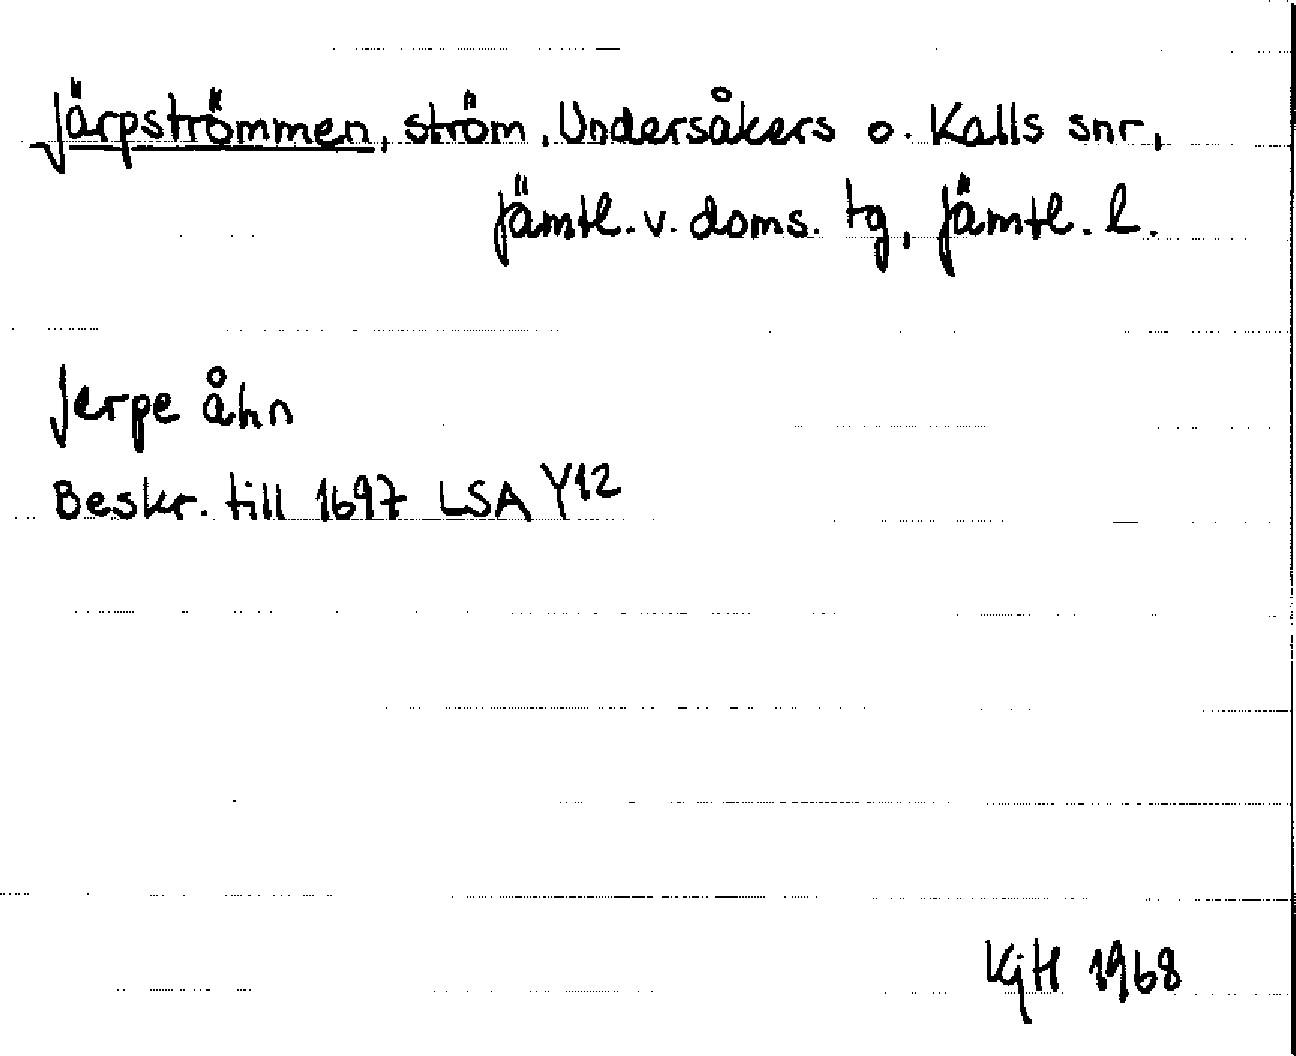 Järpströmmen, ström, Undersåkers o. Kalls snr,
Jämtl. v. doms. tg, Jämtl. l.
Jerpe åhn
Beskr. till 1697 LSA Y12
KjH 1968